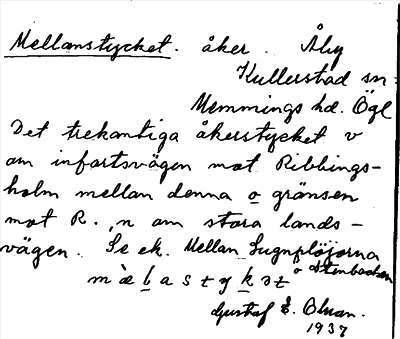 Mellanstycket. åker. Åby
Kullerstad sn.
Memmings hd. Ögl
Det trekantiga åkerstycket v
om infartsvägen mot Ribbings-
holm mellan denna o gränsen
mot R., n om stora lands-
vägen. Se ek. Mellan
o Stenbacken
Gustaf E.
1937